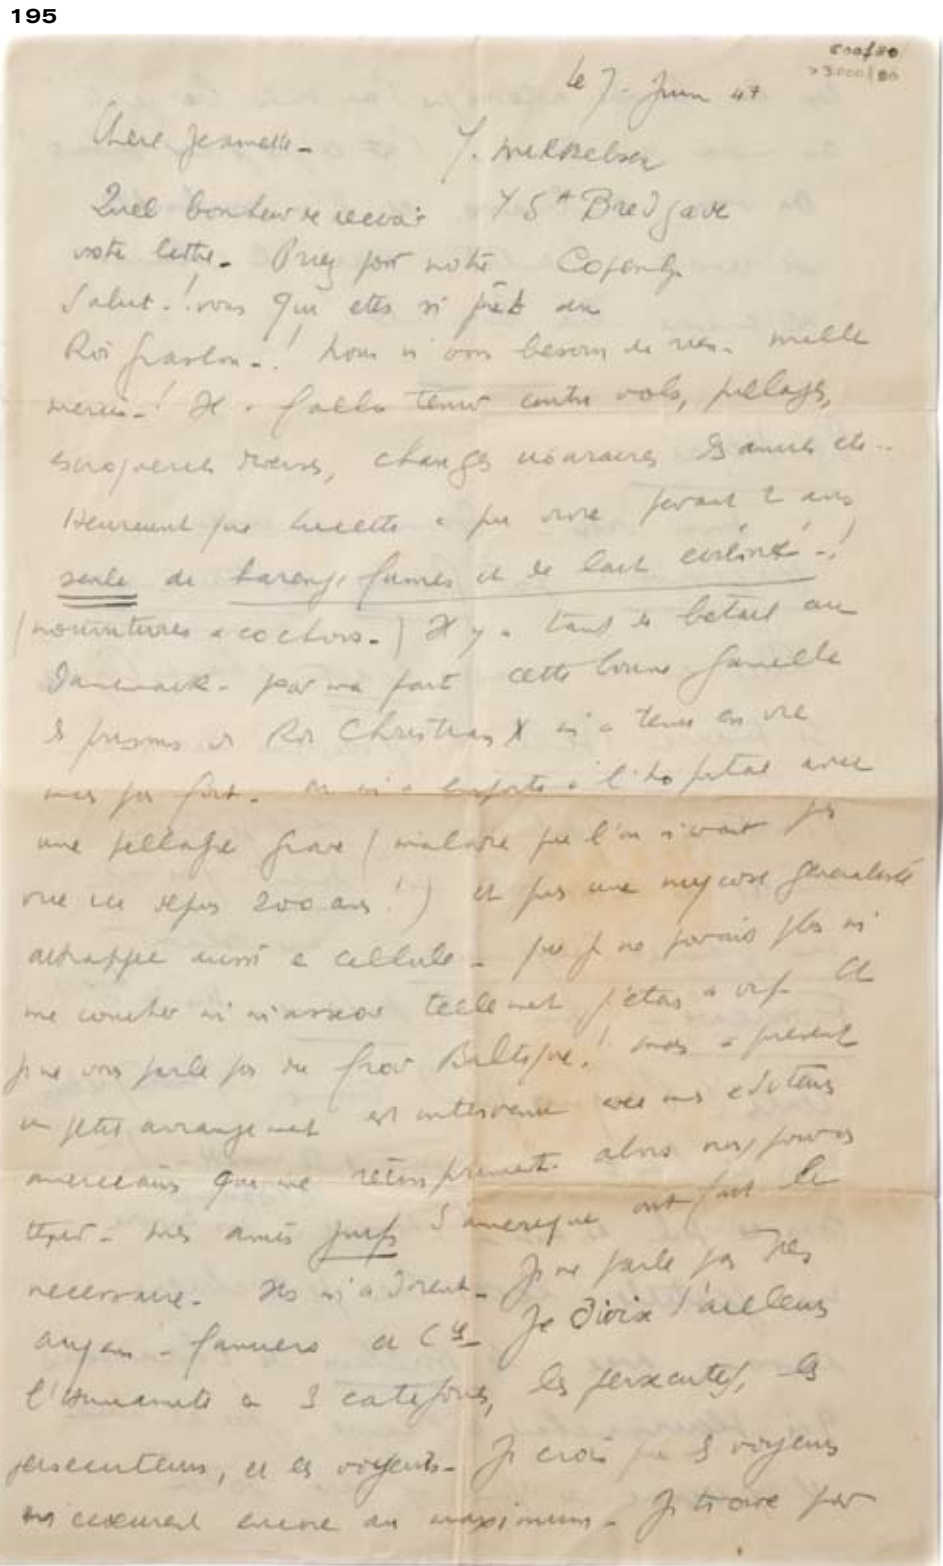 195
600/80
>3000/80
le 7. Juin 47
Chere Jeannette - T. Mikkelsen
Quel bonheur recevoir 45A Bredgade
votre lettre. Priez pour notre Copenhg.
Salut-! vous qui etes si près du
Roi Graslon-! Nous n'avons besoin de rien. mille
mercis-! Il a fallu tenir contre vols, pillages,
escroqueries diverses, changes usuraires etc..
Heureusement que Lucette a pu vivre pendant 2 ans
seule de harengs fumés et de lait ecrémé -!
(nourritures a cochons.) Il y a tant de betail au
Danemark - pour ma part cette bonne gamelle
de prisons du Roi Christian X m'a tenu en vie
mais pas fort. On m'a emporté à l'hopital avec
une pellagre grave (maladie que l'on n'avait pas
vue ici depuis 200 ans!) et puis une mycose généralisée
attrappée aussi en cellule - que je ne pouvais plus ni
me coucher ni m'asseoir tellement j'etais a vif. Et
je ne vous parle pas du froid Baltique! mais a présent
un petit arrangement est intervenu avec mes editeurs
americains qui me réimpriment. alors nous pouvons
tenir - mes amis juifs d'amerique ont fait le
necessaire. Ils m'adorent. Je ne parle pas des
aryens - et Cie Je divise d'ailleurs
l'Humanité en 3 categories, les persecutés, les
persecuteurs, et les voyeurs - Je crois que les voyeurs
encore au maximum - Je trouve que